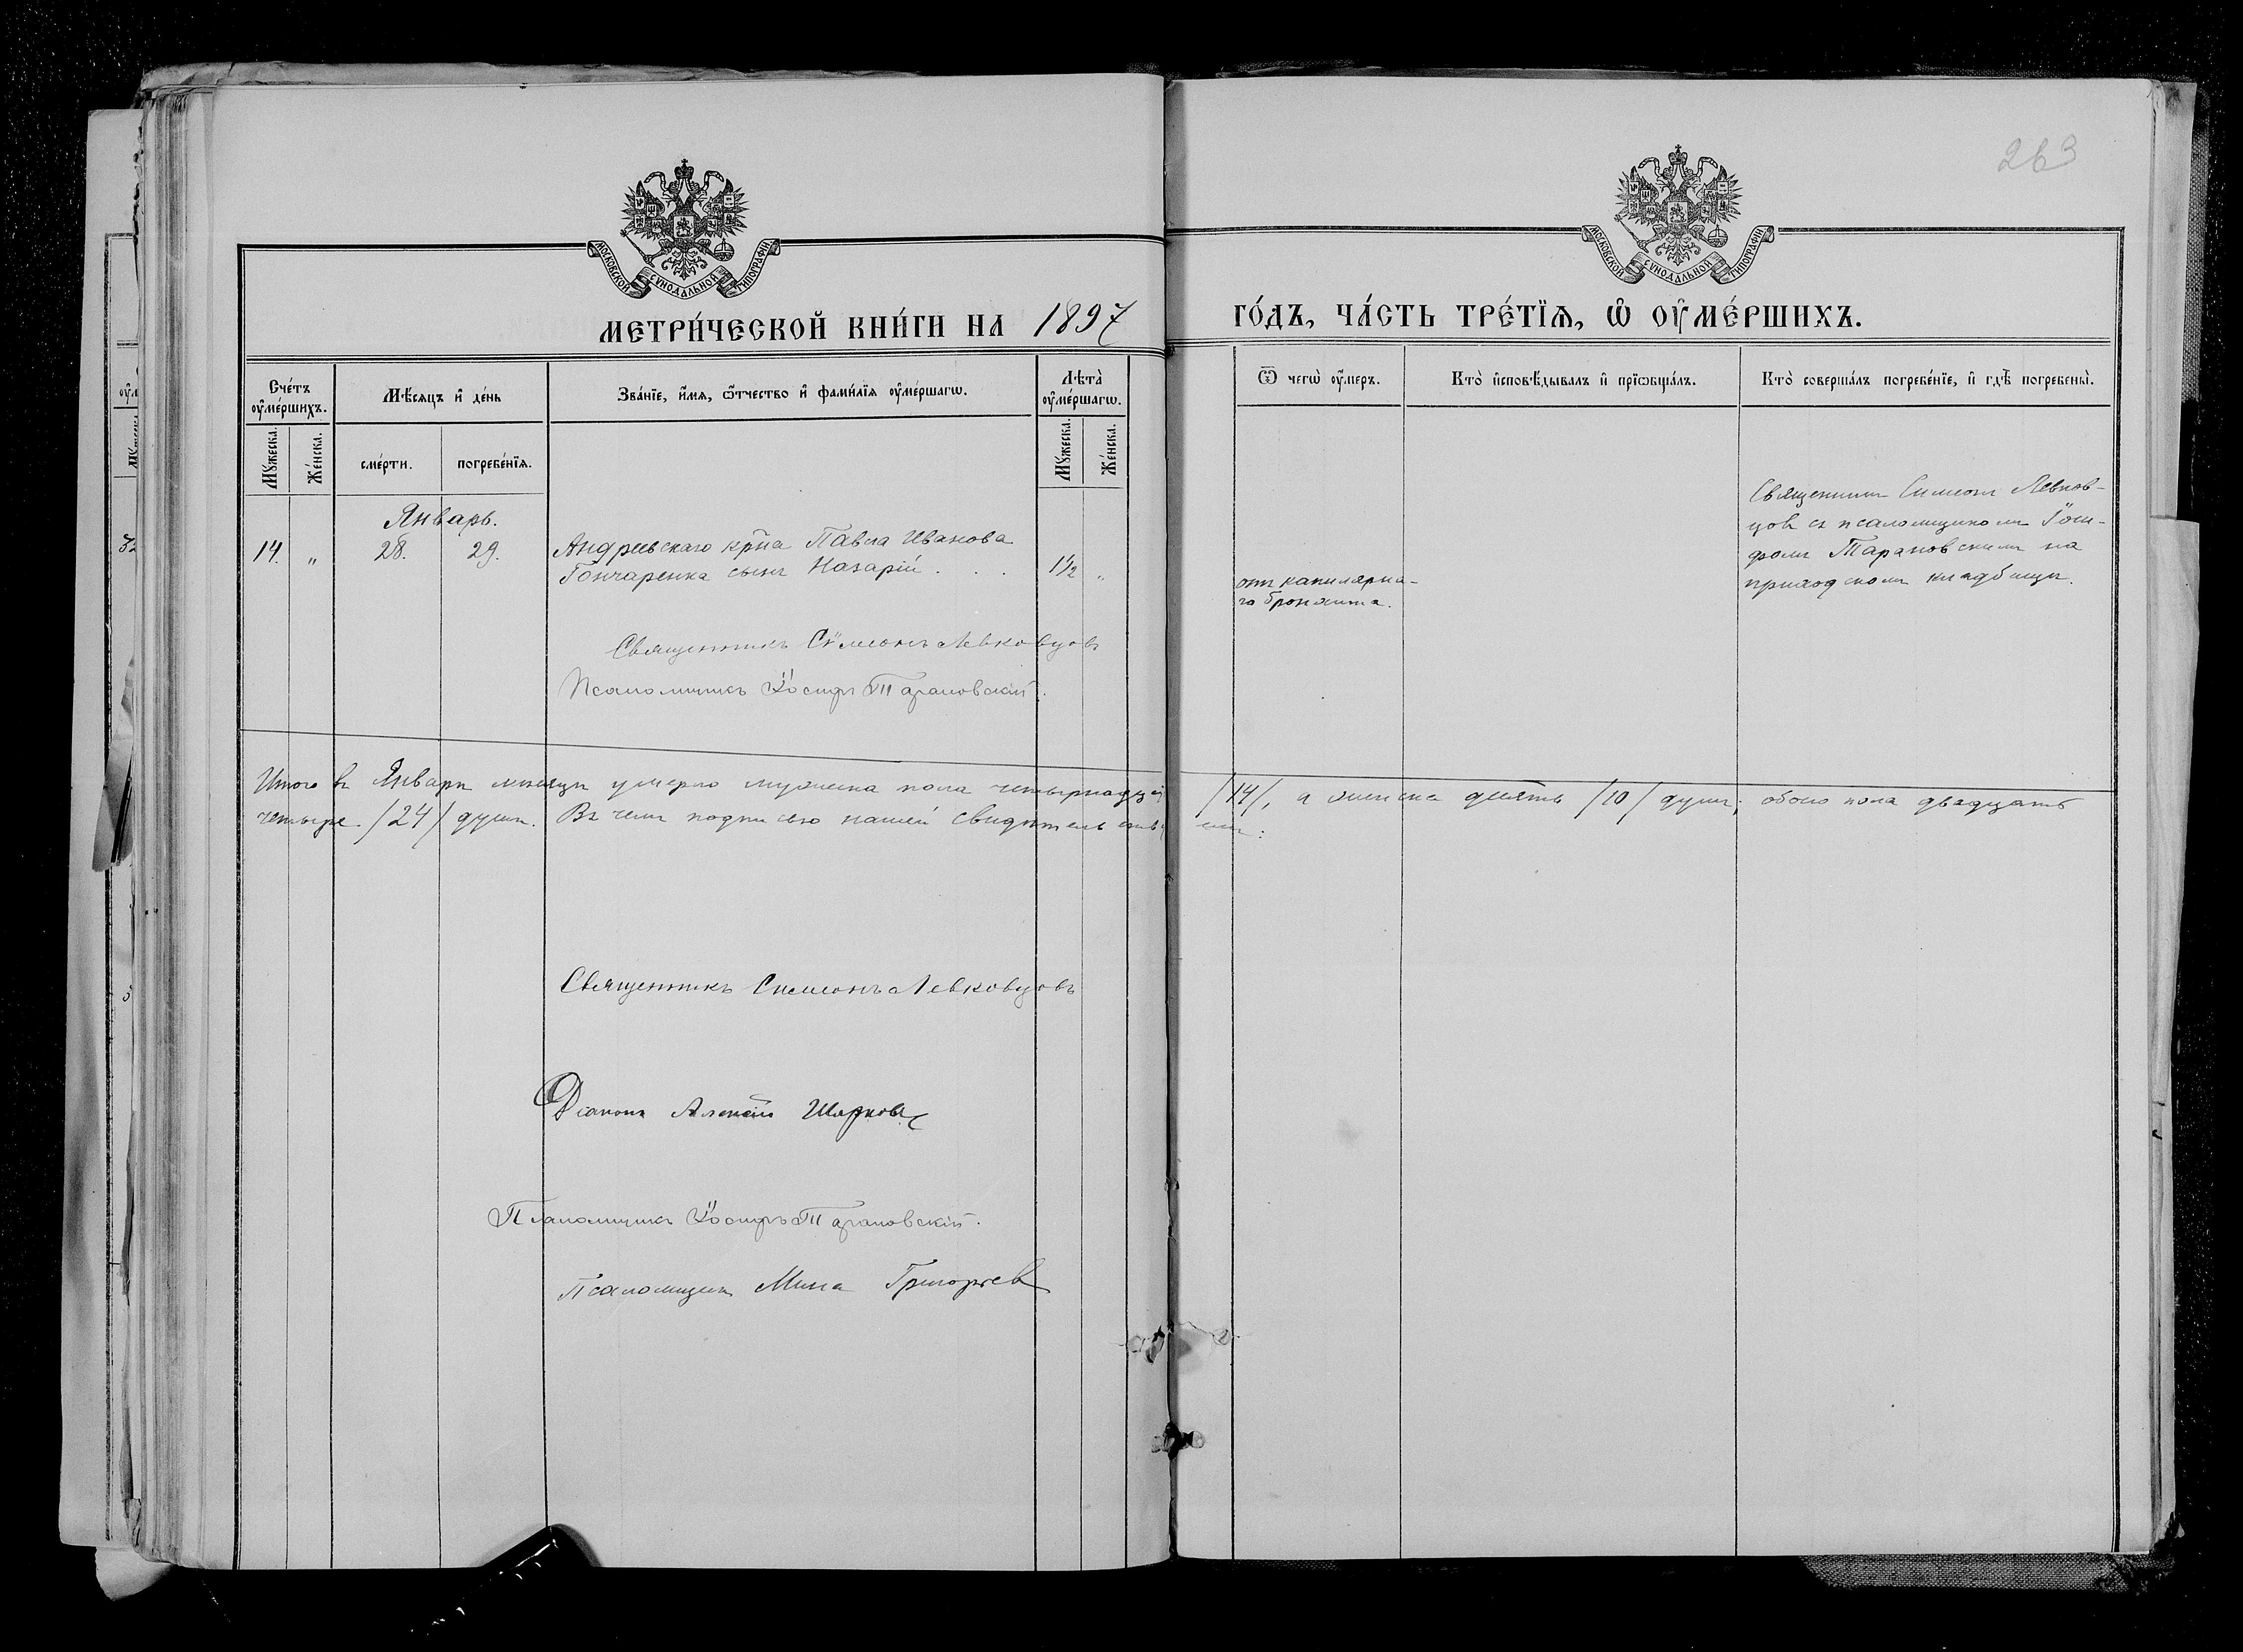 263
МОСКОВСКОЙ СѴНОДАЛЬНОЙ ТИПОГРАФІИ
МОСКОВСКОЙ СѴНОДАЛЬНОЙ ТИПОГРАФІИ
МЕТРИ́ЧЕСКОЙ КНИ́ГИ НА 1897 ГО́ДЪ, ЧА́СТЬ ТРЕ́ТЇѦ, Ѡ҆ ОУ҆МЕ́РШИХЪ.
Сче́тъ оу҆ме́ршихъ.
Мꙋ́жеска.
Же́нска.
Мѣ́сѧцъ и҆ де́нь
сме́рти.
погребе́нїѧ.
Зва́нїе, и҆́мѧ, ѻ҆́тчество и҆ фами́лїѧ оу҆ме́ршагѡ.
Лѣ́та оу҆ме́ршагѡ.
Мꙋ́жеска.
Же́нска.
Ѿ чегѡ̀ оу҆́меръ.
Кто̀ и҆сповѣ́дывалъ и҆ прїѡбща́лъ.
Кто̀ соверша́лъ погребе́нїе, и҆ гдѣ̀ погребены̀.
Январь.
14. „ 28. 29. Андреевскаго кр̃на Павла Иванова
Гончаренка сынъ Назарій . . . 1½ „
отъ капилярна-
го бронхита.
Священникъ Симеонъ Левков-
цовъ съ псаломщикомъ Іоси-
фомъ Тарановскимъ на
приходскомъ кладбищѣ.
Священникъ Симеонъ Левковцовъ
Псаломщикъ Іосифъ Тарановскій.
Итого въ Январѣ мѣсяцѣ умерло мужеска пола четырнадцать /14/, а женска десять /10/ душъ; обоего пола двадцать
четыре /24/ души. Въ чемъ подписью нашей свидѣтельствуемъ:
Священникъ Симеонъ Левковцовъ
Діаконъ Алексій
Псаломщикъ Іосифъ Тарановскій.
Псаломщикъ Мина Григорьев